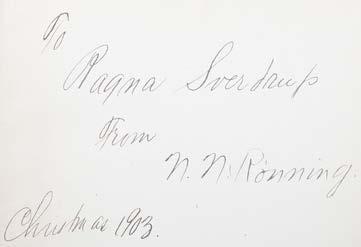 To
Ragna Sverdrup
From
N. N. Rönning.
Christmas 1903.